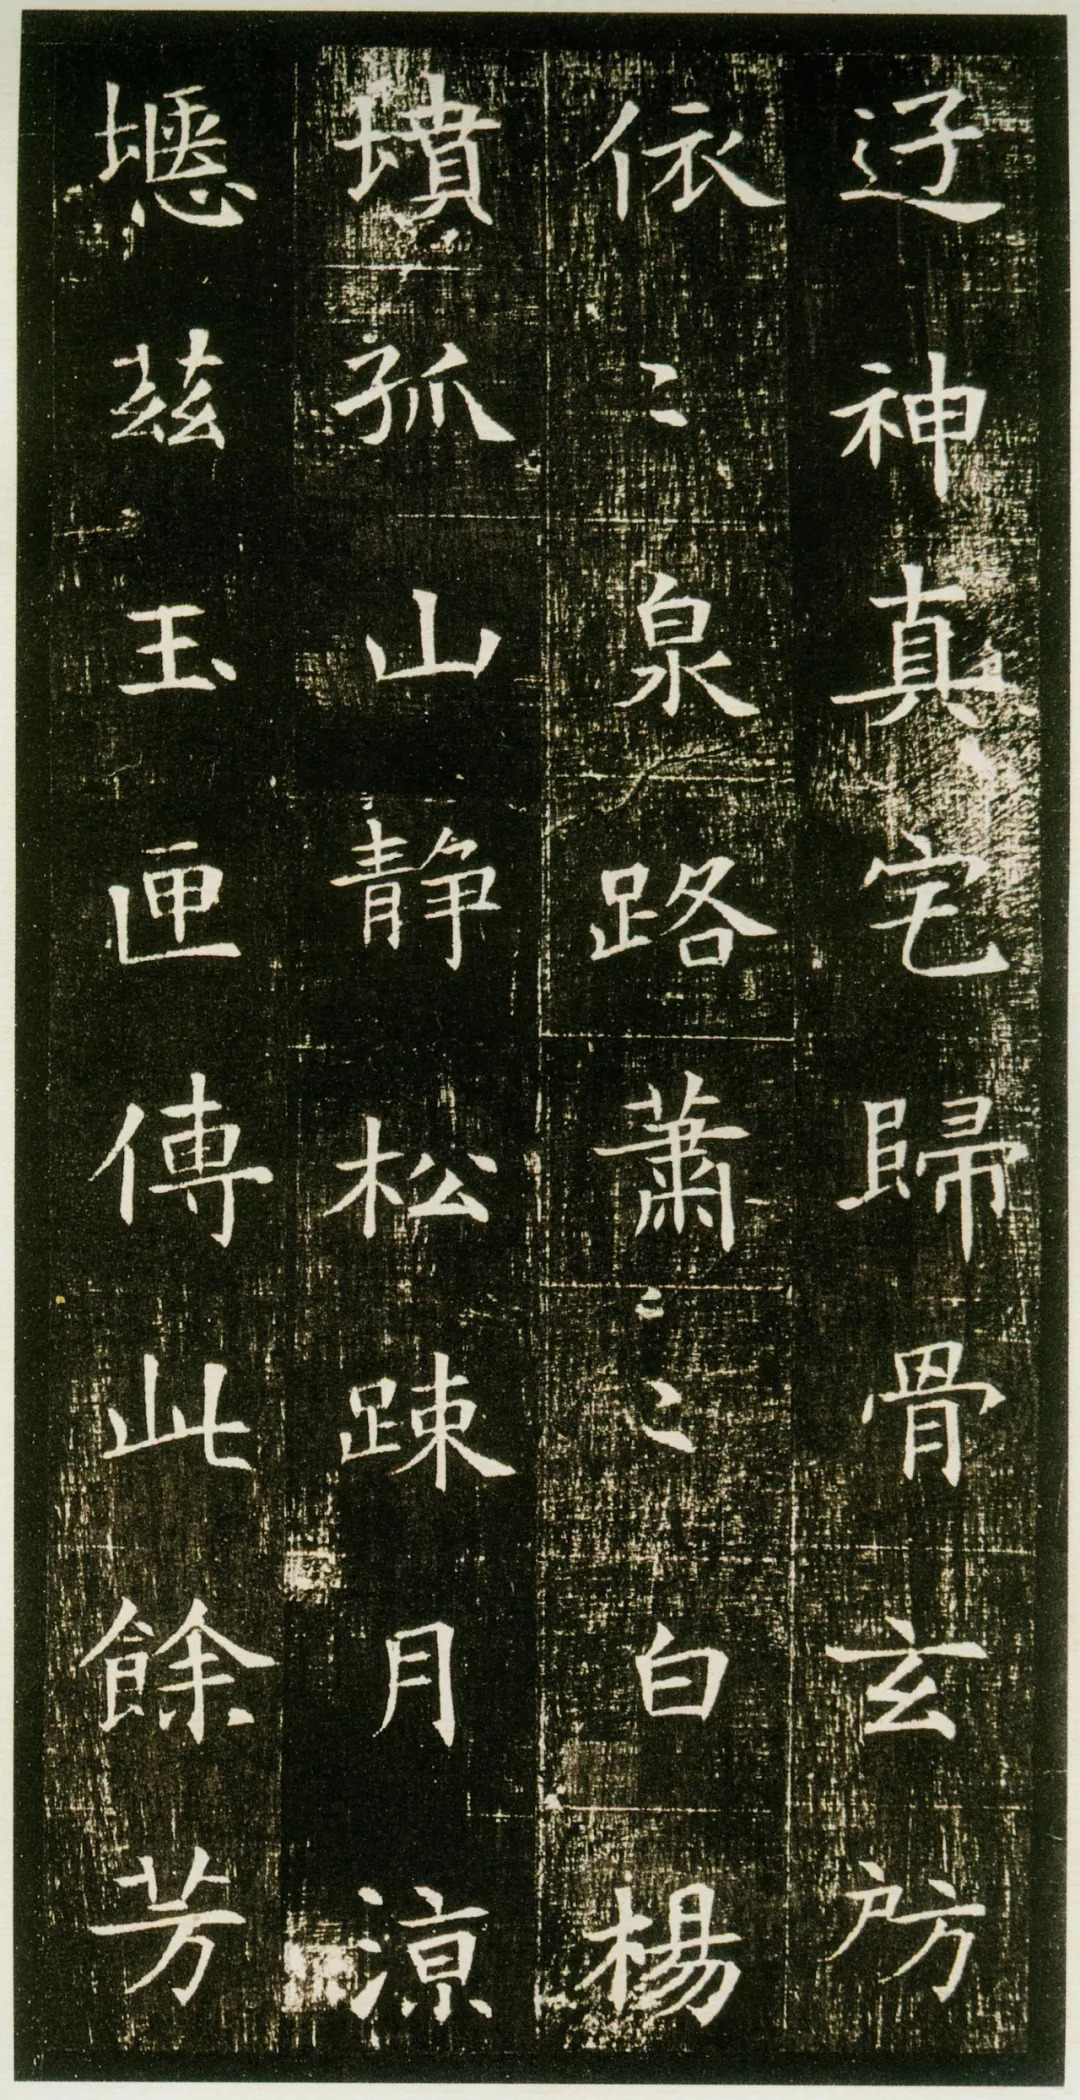 迂神真宅歸骨玄房
依〻泉路蕭〻〻白楊
墳孤山静松踈月涼
𡑞茲玉匣傳此餘芳